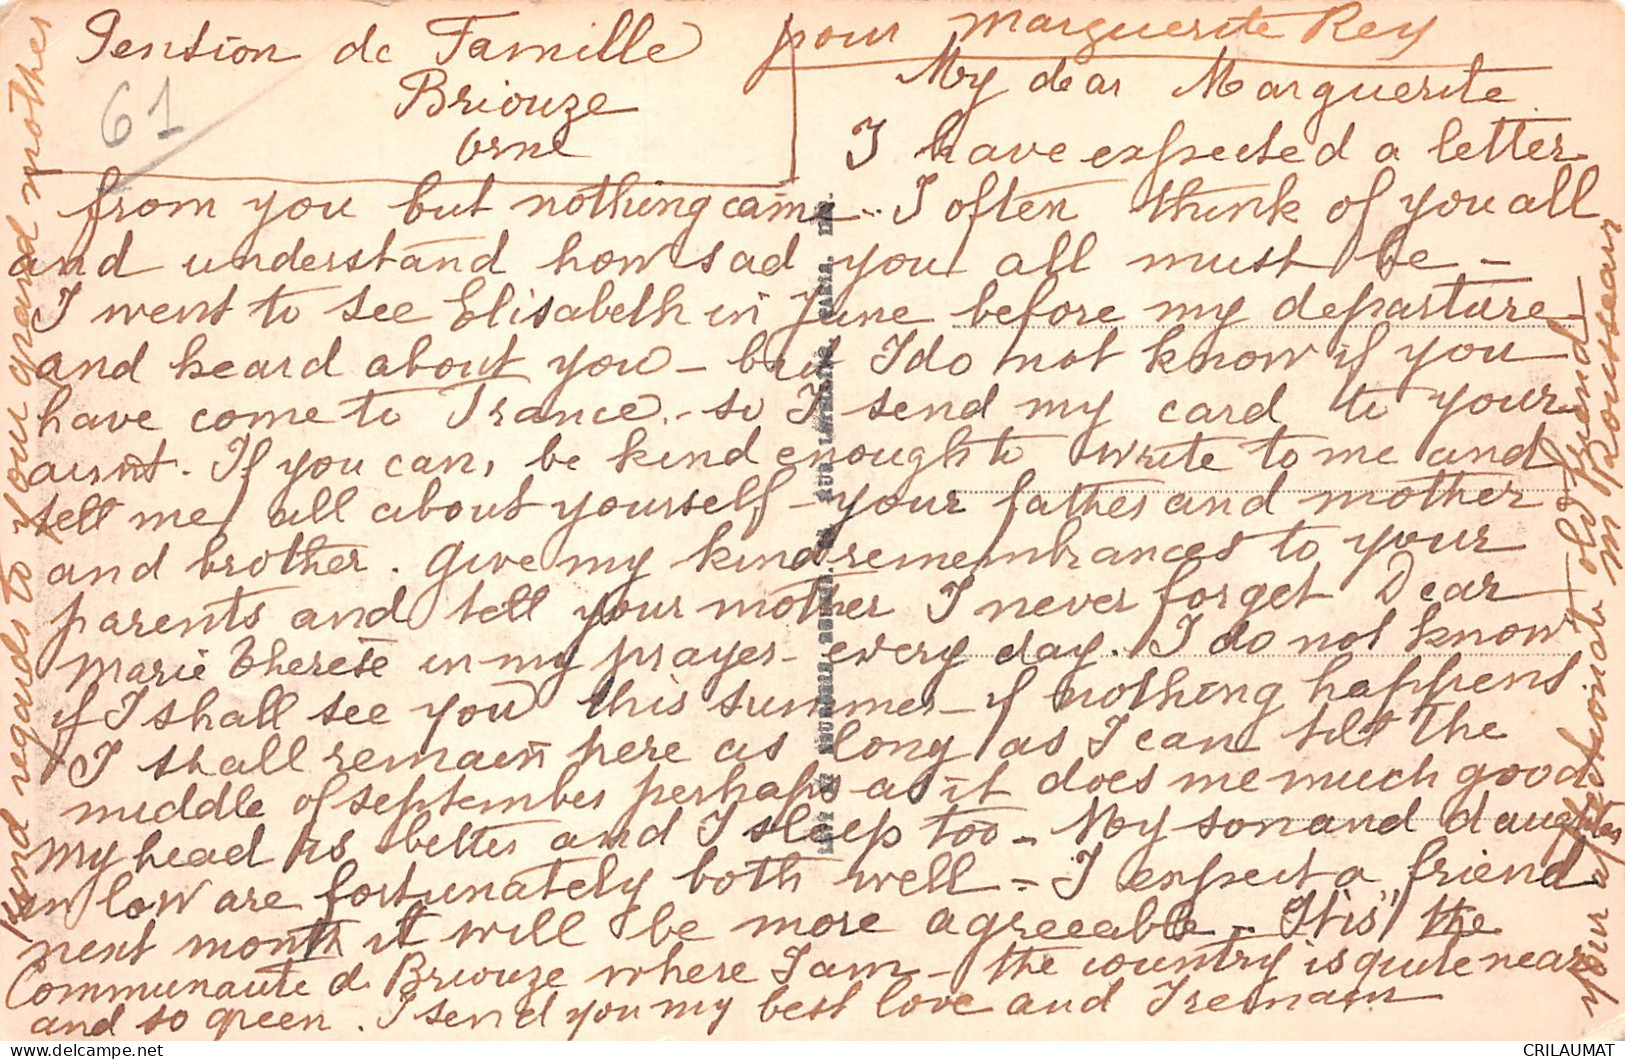 Pension de Famille
Briouze
Orne
61
pour Marguerite Rey
My dear Marguerite
I have expected a letter
from you but nothing came.. I often think of you all
and understand how sad you all must be -
I went to see Elisabeth in June before my departure
and heard about you - but I do not know if you
have come to France.. so I send my card to your
aunt. If you can, be kind enough to write to me and
tell me all about yourself - your father and mother
and brother. Give my kind remembrances to your
parents and tell your mother I never forget Dear
Marie Therese in my prayer every day. I do not know
if I shall see you this summer - if nothing happens
I shall remain here as long as I can till the
middle of september perhaps as it does me much good
My head is better and I sleep too - My son and daughter
in low are fortunately both well - I expect a friend
next month it will be more agreeable - It is "the
Communauté de Briouze where I am - the country is quite near
and so green. I send you my best love and I remain
your affectionate old friend
M Rousseau
Kind regards to your grand mother
CRILAUMAT